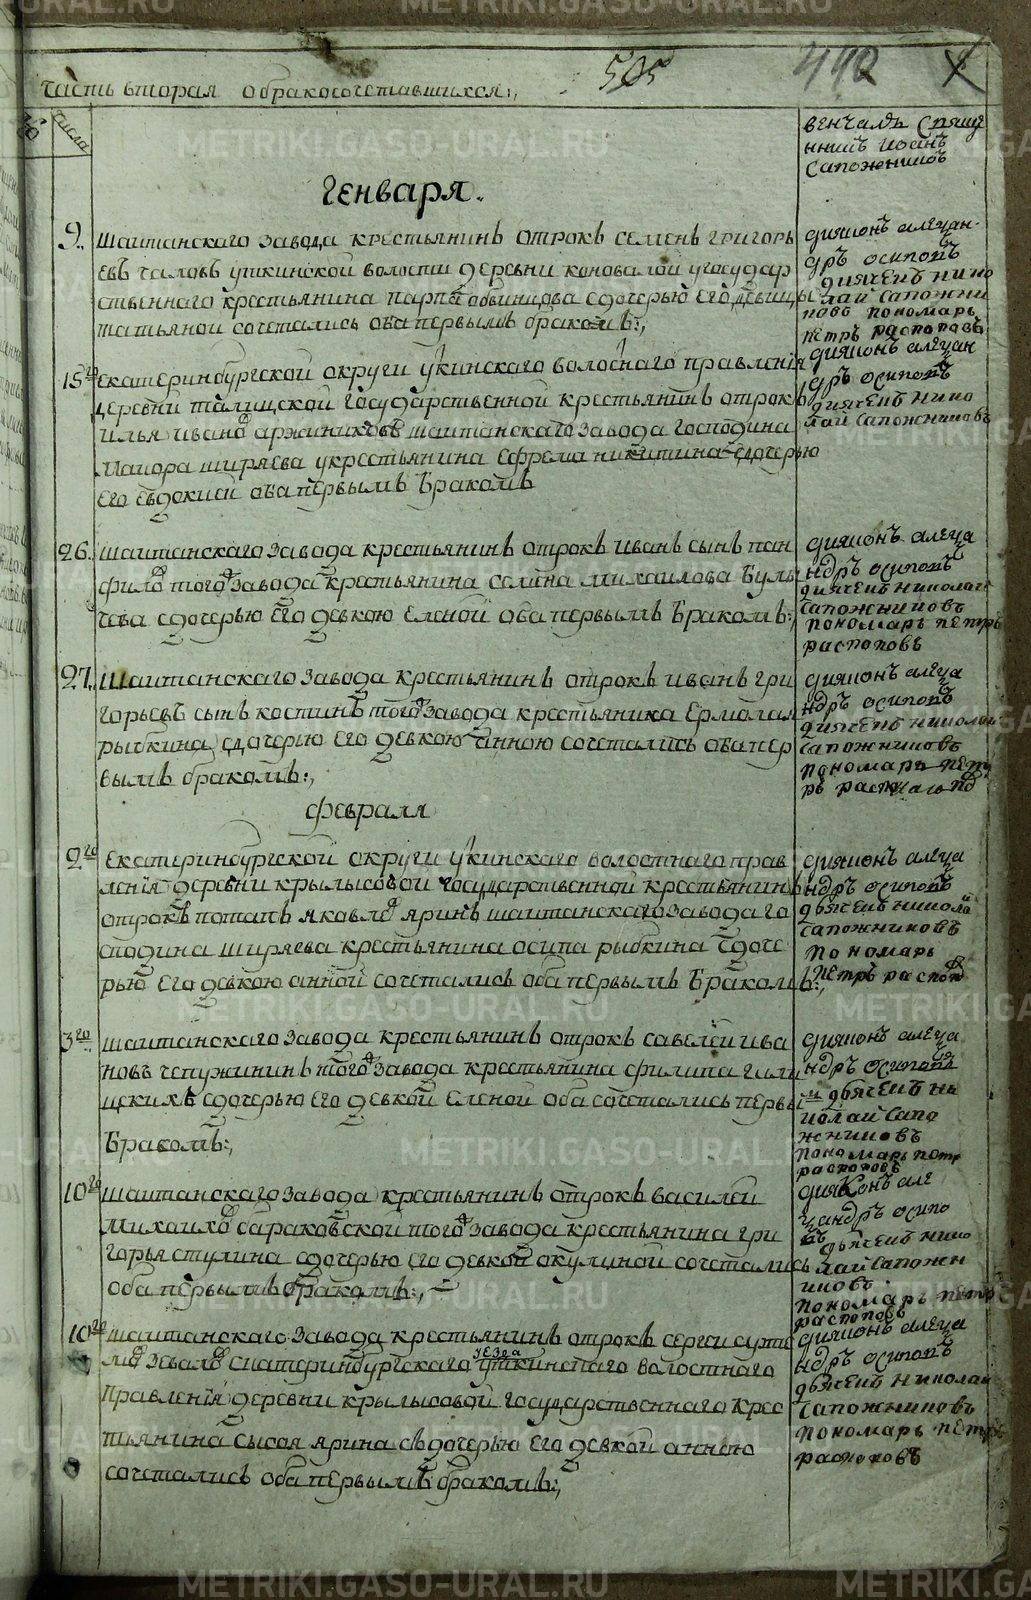 часть вторая обракосочетавшихся:,
505
440
числа
венчалъ Свяще
нникъ Иоанъ
Сапожниковъ
Генваря.
9.
Шаитанскаго завода крестьянинъ отрокъ семенъ григорь
евъ чаловъ уткинской волости деревни коновалой угосудар
ственнаго крестьянина карпа обвинцова сдочерью его девицы
татьяной сочетались оба первымъ бракомъ:,
дияконъ алексан
дръ осиповъ
дияченъ нико
лай сапожни
ковъ пономарь
петръ распоповъ
15го
екатеринбургской округи уткинского волоснаго правления
деревни талицской государственной крестьянинъ отрокъ
илья иванов аржиниковъ шаитанскаго завода господина
Маиора ширяева укрестьянина ефрема никитина сдочерью
его евдокией оба первымъ бракомъ
дияконъ алексан
дръ осиповъ
диячекъ нико
лай сапожниковъ
26.
шаитанскаго завода крестьянинъ отрокъ иванъ сынъ пан
филов тогож завода крестьянина семена михаилова Булы
чева сдочерью его девкою еленой оба первымъ бракомъ:,
дияконъ алекса
ндръ осиповъ
диячекъ николай
сапожниковъ
пономарь петръ
распоповъ
27.
Шаитанскаго завода крестьянинъ отрокъ иванъ гри
горьевъ сынъ костинъ тогож завода крестьянина Ермолая
рыбкина сдочерью его девкою анною сочетались оба пер
вымъ бракомъ:,
дияконъ алекса
ндръ осиповъ
диячекъ николай
сапожниковъ
пономарь пет
ръ распопов
февраля
2го
Екатеринбургской округи уткинскаго волостнаго прав
ления деревни крылысовой государственной крестьянинъ
отрокъ потапъ яковлев яринъ шаитанскаго завода го
сподина ширяева крестьянина осипа рыбкина сдоче
рью его девкою анной сочетались оба первымъ бракомъ:,
дияконъ алекса
ндръ осиповъ
дьячекъ никола
сапожниковъ
пономарь
петръ распоп
3го
шаитанскаго завода крестьянинъ отрокъ савелеи ива
новъ чепужининъ тогож завода крестьянина филипа гали
щкихъ сдочерью его девкой еленой оба сочетались первы
м
бракомъ:,
дияконъ алекса
ндръ осиповъ
дьячекъ ни
колай сапо
жниковъ
пономарь петр
распоповъ
10го
шаитанскаго завода крестьянинъ отрокъ василеи
Михаилов бараковской тогож завода крестьянина гри
горья стулина сдочерью его девкой окулиной сочетались
оба первымъ бракомъ:,
дияконъ але
ксандръ осипо
въ дьячекъ нико
лай сапожн
иковъ
пономарь петр
распоповъ
10го
шаитанскаго завода крестьянинъ отрокъ сергеи
екатеринбургскаго уезда уткинскаго волостнаго
правления деревни крылысовой государственнаго крес
тьянина сысоя ярина съ дочерью его девкой анною
сочетались оба первымъ бракомъ:,
дияконъ алекса
ндръ осиповъ
дьячекъ николай
сапожниковъ
пономарь петръ
распоповъ
METRIKI.GASO-URAL.RU